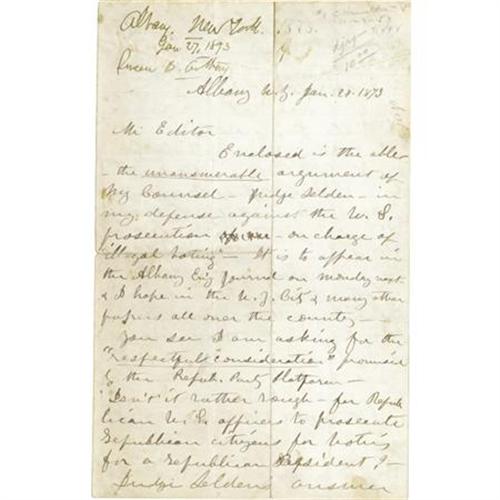 Albany. New York.
Jan 27, 1893
Susan B. Anthony
Albany N. Y. Jan. 28. 1873
Mr Editor
Enclosed is the able
- the unanswerable argument of
My Counsel - Judge Selden - in
my defense against the U. S.
prosecution - on charge of
"illegal voting" - It is to appear in
the Albany Eng Journal on Monday next
& I hope in the N. Y. City & many other
papers all over the country -
You see I am asking for the
"respectful consideration" promised
by the Repub. Party Platform -
Isn't it rather rough - for Repub
lican U. S. officers to prosecute
Republican citizens for voting
for a Republican President? -
Judge Seldens answer